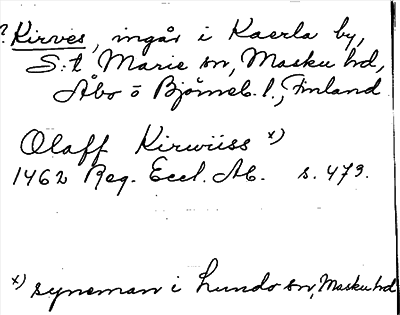 ? Kirves, ingår i Kaerla by,
S:t Marie sn, Masku hd,
Åbo o Björneb. l., Finland
Olaff Kirwiiss x)
1462 Reg. Eccl. Ab. s. 479.
x) syneman i Lundo sn, Masku hd